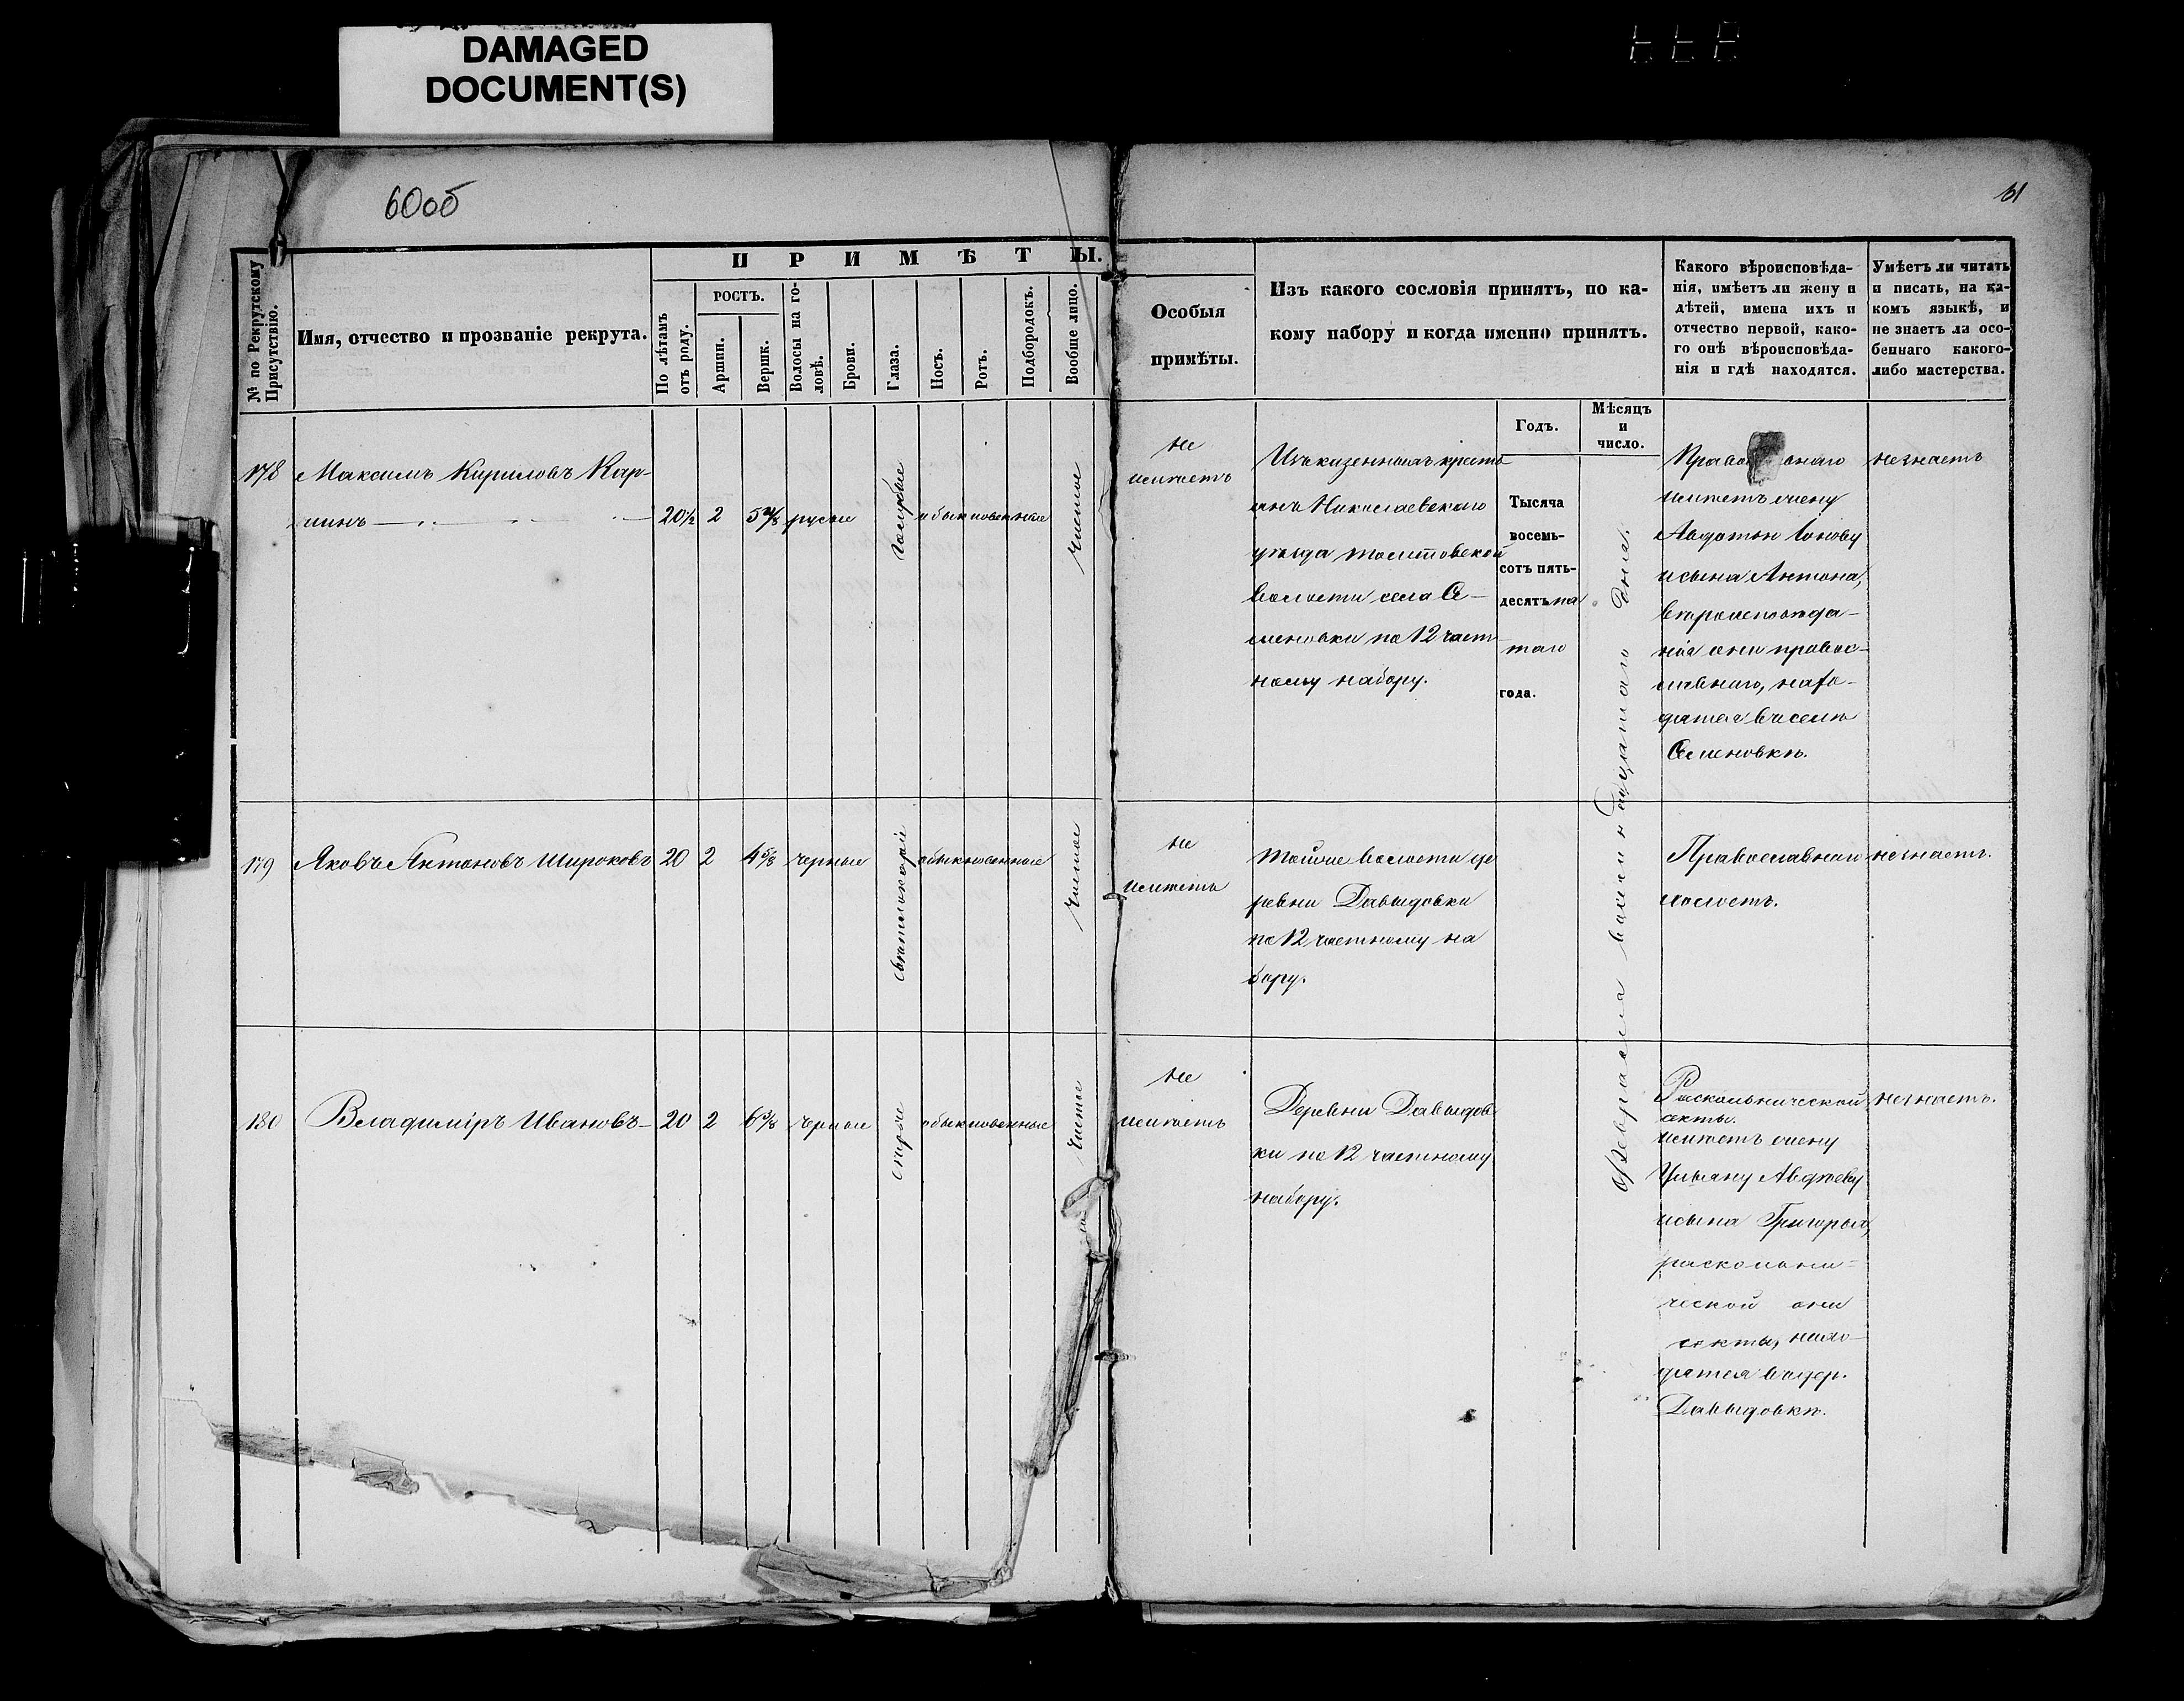 DAMAGED
DOCUMENT(S)
60об
61
№ по Рекрутскому
Присутствію.
Имя, отчество и прозваніе рекрута.
ПРИМѢТЫ.
По лѣтамъ
отъ роду.
РОСТЪ.
Аршин.
Вершк.
Волосы на го-
ловѣ.
Брови.
Глаза.
Носъ.
Ротъ.
Подбородокъ.
Вообще лицо.
Особыя
примѣты.
Изъ какого сословія принятъ, по ка-
кому набору и когда именно принятъ.
Годъ.
Мѣсяцъ
и
число.
Какого вѣроисповѣда-
нія, имѣетъ ли жену и
дѣтей, имена ихъ и
отчество первой, како-
го онѣ вѣроисповѣда-
нія и гдѣ находятся.
Умѣетъ ли читать
и писать, на ка-
комъ языкѣ, и
не знаетъ ли осо-
беннаго какого-
либо мастерства.
178
Максимъ Кириловъ Кар-
20½ 2 5 русые
голубые
обыкновенные
чистое
не
имѣетъ
Изъ казенныхъ кресть
янъ Николаевскаго
уѣзда толстовской
волости села Се-
меновки по 12 част
ному набору.
Тысяча
восемь-
сотъ пять-
десятъ пя
таго
года.
Февраля восемнадцатаго дня.
имѣетъ жену
Авдотью Іонову
и сына Антона,
вѣроисповѣда-
нія они правос-
лавнаго, нахо-
дятся въ селѣ
Семеновкѣ.
незнаетъ
179
Яковъ Антоновъ Широковъ
20 2 4⅝ черные
свѣтлокаріе
обыкновенные
чистое
не
имѣетъ
Тойже волости де
ревни Давыдовки
по 12 частному на
бору.
Православнаго
холостъ.
незнаетъ.
180
Владиміръ Ивановъ
20 2 6⅜ черные
сѣрые
обыкновенные
чистое
не
имѣетъ
Деревни Давыдов
ки по 12 частному
набору.
Раскольнической
секты.
имѣетъ жену
Ульяну Авдѣеву
и сына Григорья,
раскольни-
ческой они
секты, нахо-
дятся въ дер.
Давыдовкѣ.
незнаетъ.